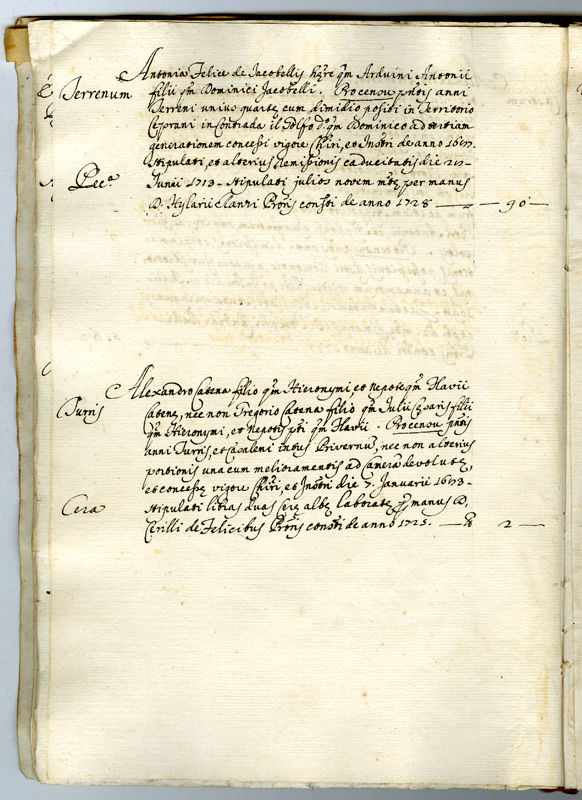 Antonia Felice de Jacobellis hęre qm Arduini Antonii
Terrenum
filii qm Dominici Jacobelli. Pro censu pntis anni
Terreni unius quartę cum dimidio positi in Territorio
Ceprani in Contrada il Golfo do. qm Dominico ad tertiam
generationem concessi vigore Chiri, et Instri de anno 1697.
Stipulati, et alterius remissionis caducitatis die 27
Pec.a
Junii 1713 - Stipulati julios novem mtę per manus
D. Hylarii Clanri Proris constti de anno 1728 — — 90 —
Alexandro Catena filio qm Hieronymi, et Nepote qm Flavii
Turris
Catenę, nec non Gregorio Catena filio qm Julii Cęsaris filii
qm Hieronymi, et Nepotis pti qm Flavii. Pro censu pntis
anni Turris, et Casaleni intus Privernũ, nec non alterius
portionis una cum melioramentis ad Camerã devolutę,
et concessę vigore Chiri, et Instri die 7. Januarii 1693 -
Cera
Stipulati libras duas Cerę albę laboratę p manus D.
Cirilli de Felicibus Proris constti de anno 1725. — ℔ 2 —